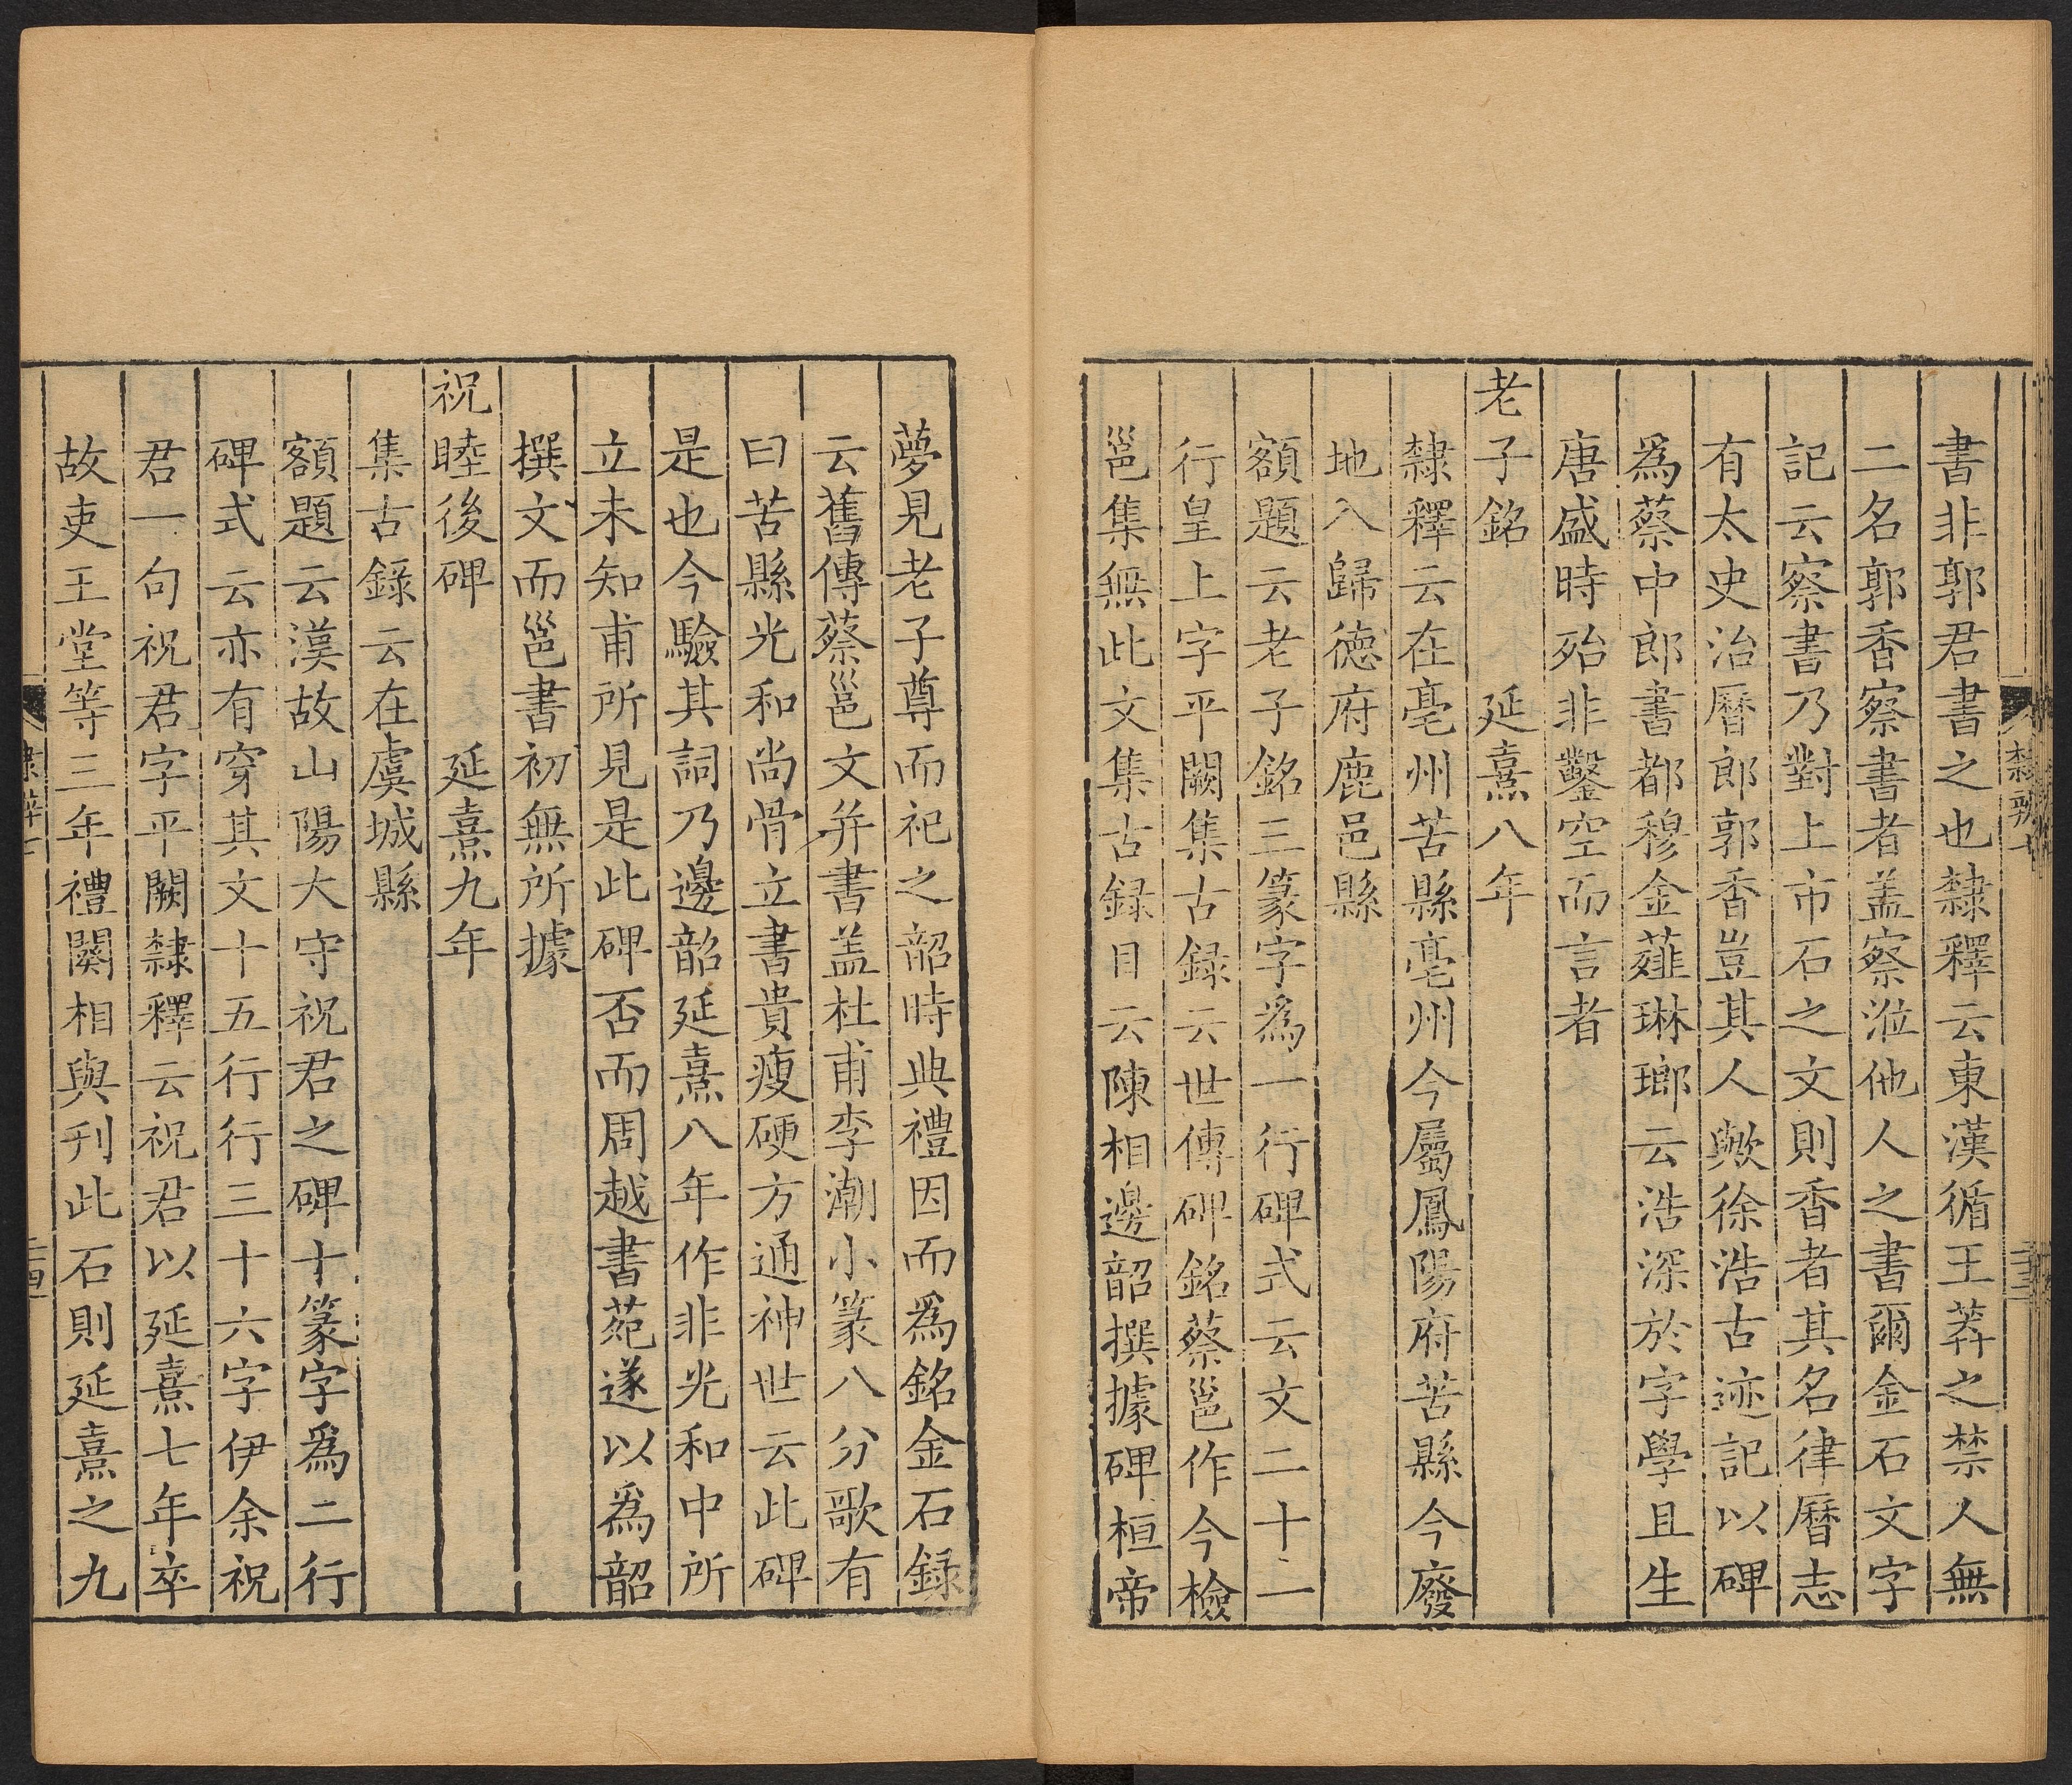 書非郭君書之也隸釋云東漢循王莽之禁人無
二名郭香察書者盖察涖他人之書爾金石文字
記云察書乃對上市石之文則香者其名律曆志
有太史治曆郎郭香豈其人歟徐浩古迹記以碑
爲蔡中郎書都穆金薤琳瑯云浩深於字學且生
唐盛時殆非鑿空而言者
老子銘 延熹八年
隸釋云在亳州苦縣亳州今屬鳳陽府苦縣今廢
地入歸德府鹿邑縣
額題云老子銘三篆字爲一行碑式云文二十一
行皇上字平闕集古録云世傳碑銘蔡邕作今檢
邕集無此文集古録目云陳相邊韶撰據碑桓帝
夢見老子尊而祀之韶時典禮因而爲銘金石録
云舊傳蔡邕文并書盖杜甫李潮小篆八分歌有
曰苦縣光和尚骨立書貴瘦硬方通神世云此碑
是也今驗其詞乃邊韶延熹八年作非光和中所
立未知甫所見是此碑否而周越書苑遂以爲韶
撰文而邕書初無所據
祝睦後碑 延熹九年
集古錄云在虞城縣
額題云漢故山陽大守祝君之碑十篆字爲二行
碑式云亦有穿其文十五行行三十六字伊余祝
君一句祝君字平闕隸釋云祝君以延熹七年卒
故吏王堂等三年禮闋相與刊此石則延熹之九